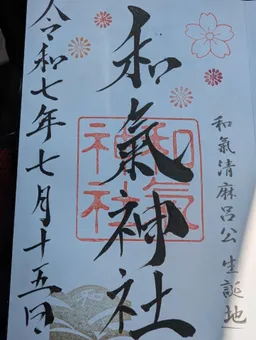 和氣清麻呂公 生誕地
和氣神社
和氣神社
令和七年七月十五日